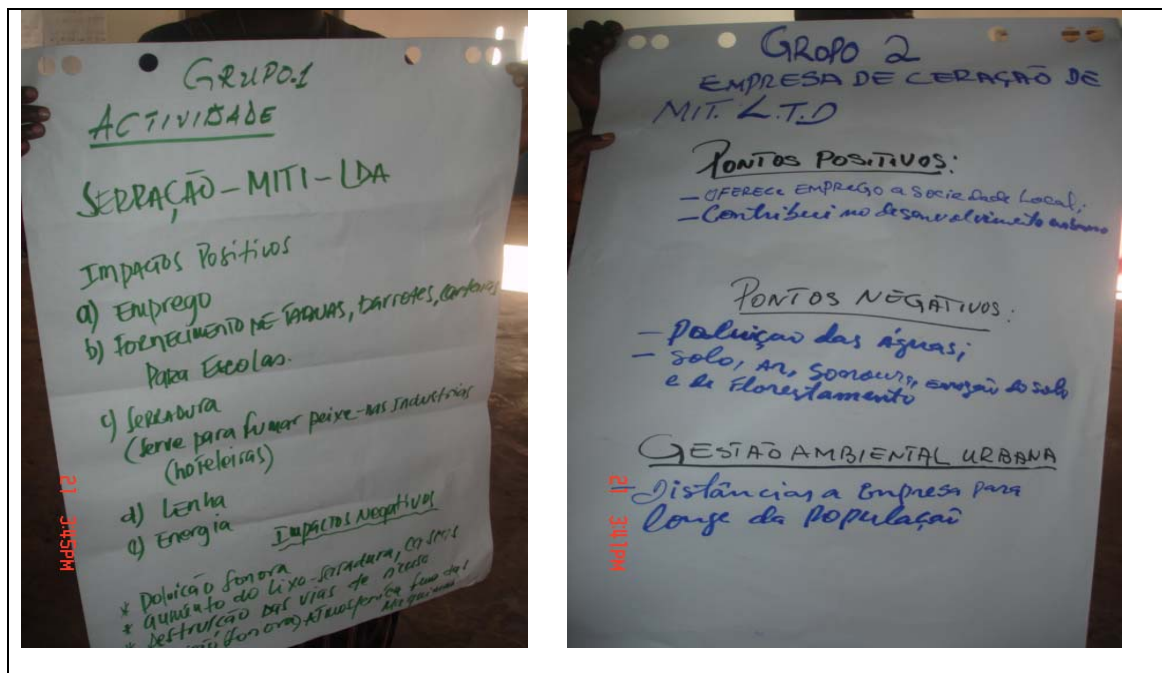 GRUPO.1
ACTIVIDADE
SERRAÇÃO-MITI-LDA
IMPACTOS Positivos
a) Emprego
b) FORNECIMENTO DE TABUAS, barrotes, carteiras
Para Escolas.
c) SERRADURA
(Serve para fumar peixe-nas Industrias
(hoteleiras)
d) Lenha
e) Energia
Impactos Negativos
* Poluicão Sonora
* aumento do Lixo-serradura,
* destruição das vias de acesso
(sonora) Atmosferica fumo das
Maquinas
21 3:45PM
GROPO 2
EMPRESA DE CERAÇÃO DE
MIT. L.T.D
PONTOS POSITIVOS:
- OFERECE EMPREGO a Sociedade Local;
- Contribui no desenvolvimento urbano
PONTOS NEGATIVOS:
- Poluiçao das Águas;
- Solo, Ar, Sonoura, erosão do solo
e de Florestamento
GESTÃO AMBIENTAL URBANA
- Distânciar a Empresa para
longe da População
21 3:41PM